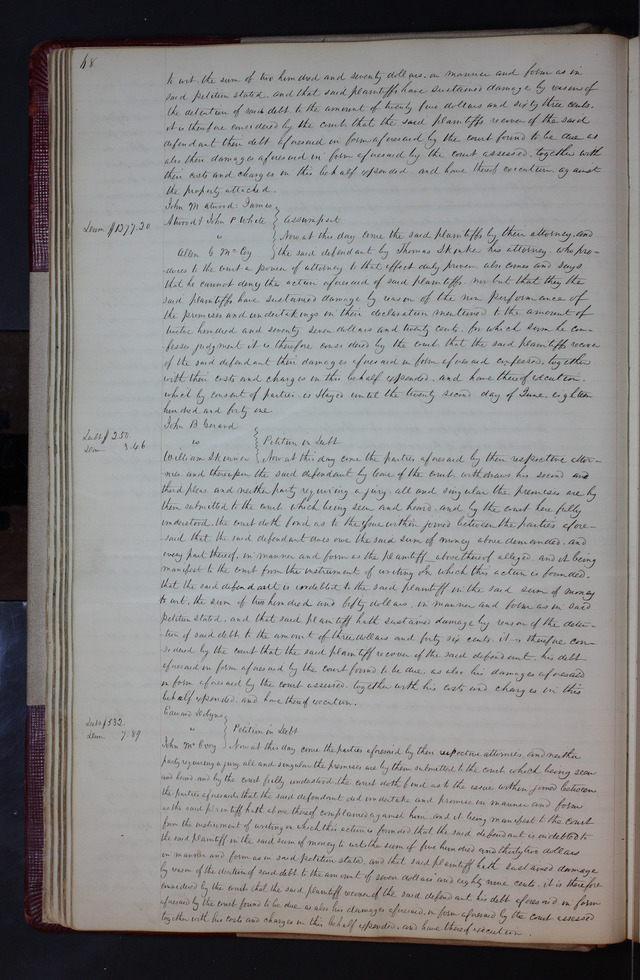 68
to wit. the sum of two hundred and seventy dollars. in manner and form as in
said petition stated. and that said plaintiffs have sustained damage by reason of
the detention of said debt to the amount of twenty five dollars and sixty three cents.
it is therefore considered by the court that the said plaintiffs recover of the said
defendant their debt aforesaid in form aforesaid by the court found to be due as
also their damages aforesaid in form aforesaid by the court assessed. together with
their costs and charges in this behalf expended. and have thereof execution. against
the property attached.
John M Atwood. James
Dam $1277.20
Atwood & John P White } Assumpsit
vs
Now at this day come the said plaintiffs by their attorney. and
Allen C McCoy } the said defendant by Thomas his attorney. who pro-
duces to the court a power of attorney to that effect duly proven also comes and says
that he cannot deny the action aforesaid of said plaintiffs. nor but that they the
said plaintiffs have sustained damage by reason of the non performance of
the promises and undertakings in their declaration mentioned to the amount of
twelve hundred and seventy seven dollars and twenty cents. for which sum he con-
fesses judgment. it is therefore considered by the court that the said plaintiffs recover
of the said defendant their damages aforesaid in form aforesaid confessed. together
with their costs and charges in this behalf expended. and have thereof execution.
which by consent of parties is stayed until the twenty second day of June. eighteen
hundred and forty one.
John B
Debt $250.
Dam 3.46
vs } Petition in Debt
William Skinner } Now at this day come the parties aforesaid by their respective attor-
nies. and thereupon the said defendant by leave of the court. withdraws his second and
third pleas. and neither party requiring a jury. all and singular the premises are by
them submitted to the court which being seen and heard. and by the court here fully
understood. the court doth find as to the issue within joined between the parties afore-
said that the said defendant does owe the said sum of money above demanded. and
every part thereof. in manner and form as the plaintiff above thereof alleged. and it being
manifest to the court from the instrument of writing on which this action is founded.
that the said defendant is indebted to the said plaintiff in the said sum of money
to wit. the sum of two hundred and fifty dollars. in manner and form as in said
petition stated. and that said plaintiff hath sustained damage by reason of the deten-
tion of said debt to the amount of three dollars and forty six cents. it is therefore con-
sidered by the court that the said plaintiff recover of the said defendant. his debt
aforesaid in form aforesaid by the court found to be due. as also his damages aforesaid
in form aforesaid by the court assessed. together with his costs and charges in this
behalf expended. and have thereof execution.
Edward
Debt $532.
Dam 7.89
vs } Petition in Debt
John McCoy } Now at this day come the parties aforesaid by their respective attornies. and neither
party requiring a jury all and singular the premises are by them submitted to the court which being seen
and heard and by the court fully understood. the court doth find as to the issue within joined between
the parties aforesaid. that the said defendant did undertake and promise in manner and form
as the said plaintiff hath above thereof complained against him. and it being manifest to the court
from the instrument of writing on which this action is founded that the said defendant is indebted to
the said plaintiff in the said sum of money to wit. the sum of five hundred and thirty two dollars
in manner and form as in said petition stated. and that said plaintiff hath sustained damage
by reason of the detention of said debt to the amount of seven dollars and eighty nine cents. it is therefore
considered by the court that the said plaintiff recover of the said defendant his debt aforesaid in form
aforesaid by the court found to be due. as also his damages aforesaid. in form aforesaid by the court assessed
together with his costs and charges in this behalf expended. and have thereof execution.